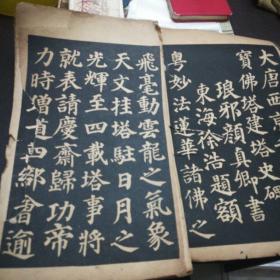 大唐
寶佛塔建塔史碑
琅邪顏真卿書
東海徐浩題額
粵妙法蓮華諸佛之
飛毫動雲龍之氣象
天文挂塔駐日月之
光輝至四載塔事將
就表請慶齋歸功帝
力時會逾